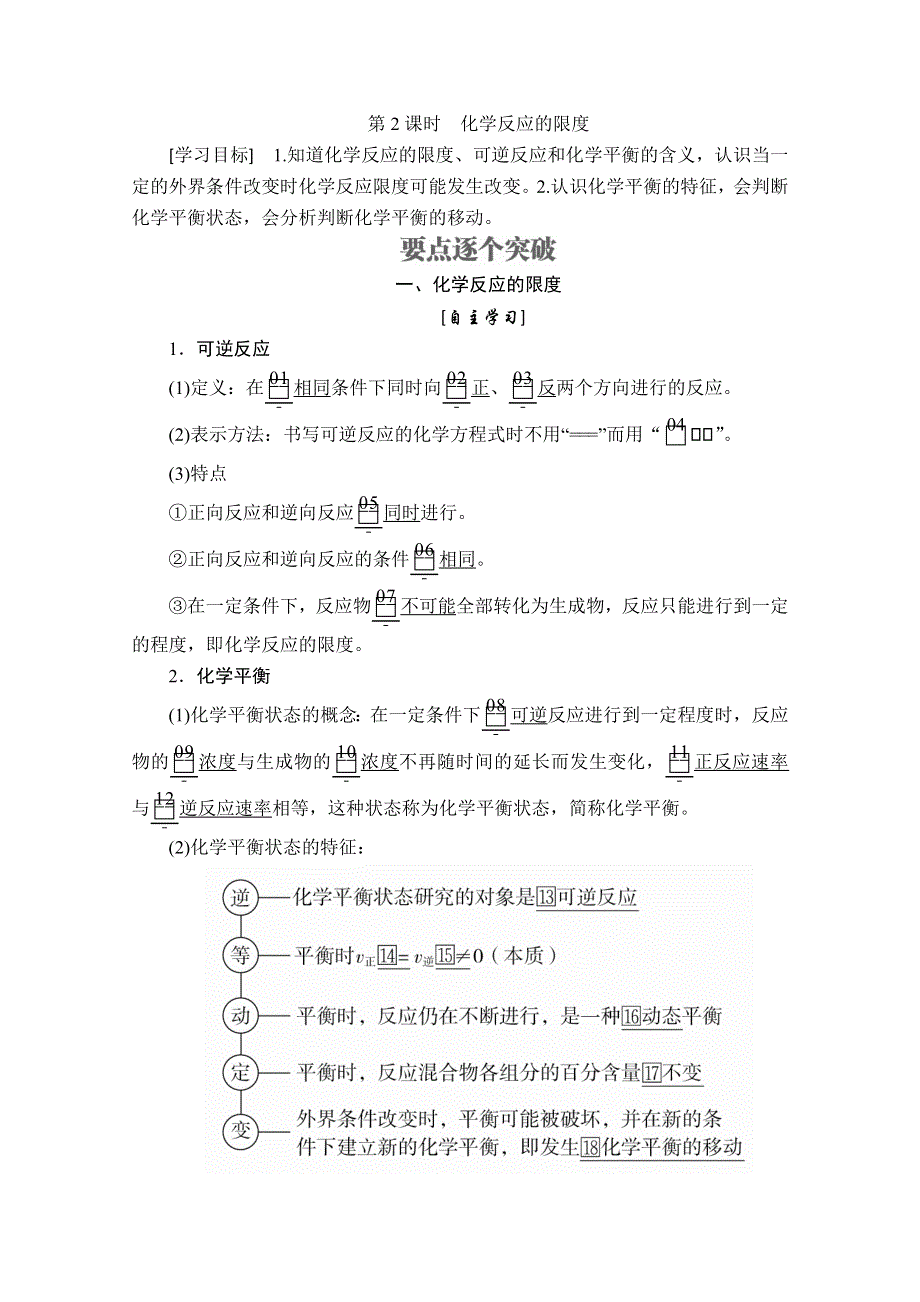 第2课时　化学反应的限度
[学习目标]　1.知道化学反应的限度、可逆反应和化学平衡的含义，认识当一
定的外界条件改变时化学反应限度可能发生改变。2.认识化学平衡的特征，会判断
化学平衡状态，会分析判断化学平衡的移动。
要点逐个突破
一、化学反应的限度
[自主学习]
1．可逆反应
(1)定义：在01相同条件下同时向02正、03反两个方向进行的反应。
(2)表示方法：书写可逆反应的化学方程式时不用“===”而用“04□□”。
(3)特点
①正向反应和逆向反应05同时进行。
②正向反应和逆向反应的条件06相同。
③在一定条件下，反应物07不可能全部转化为生成物，反应只能进行到一定
的程度，即化学反应的限度。
2．化学平衡
(1)化学平衡状态的概念：在一定条件下08可逆反应进行到一定程度时，反应
物的09浓度与生成物的10浓度不再随时间的延长而发生变化，11正反应速率
与12逆反应速率相等，这种状态称为化学平衡状态，简称化学平衡。
(2)化学平衡状态的特征：
逆 化学平衡状态研究的对象是13可逆反应
等 平衡时v正14= v逆15≠0（本质）
动 平衡时，反应仍在不断进行，是一种16动态平衡
定 平衡时，反应混合物各组分的百分含量17不变
变 外界条件改变时，平衡可能被破坏，并在新的条
件下建立新的化学平衡，即发生18化学平衡的移动